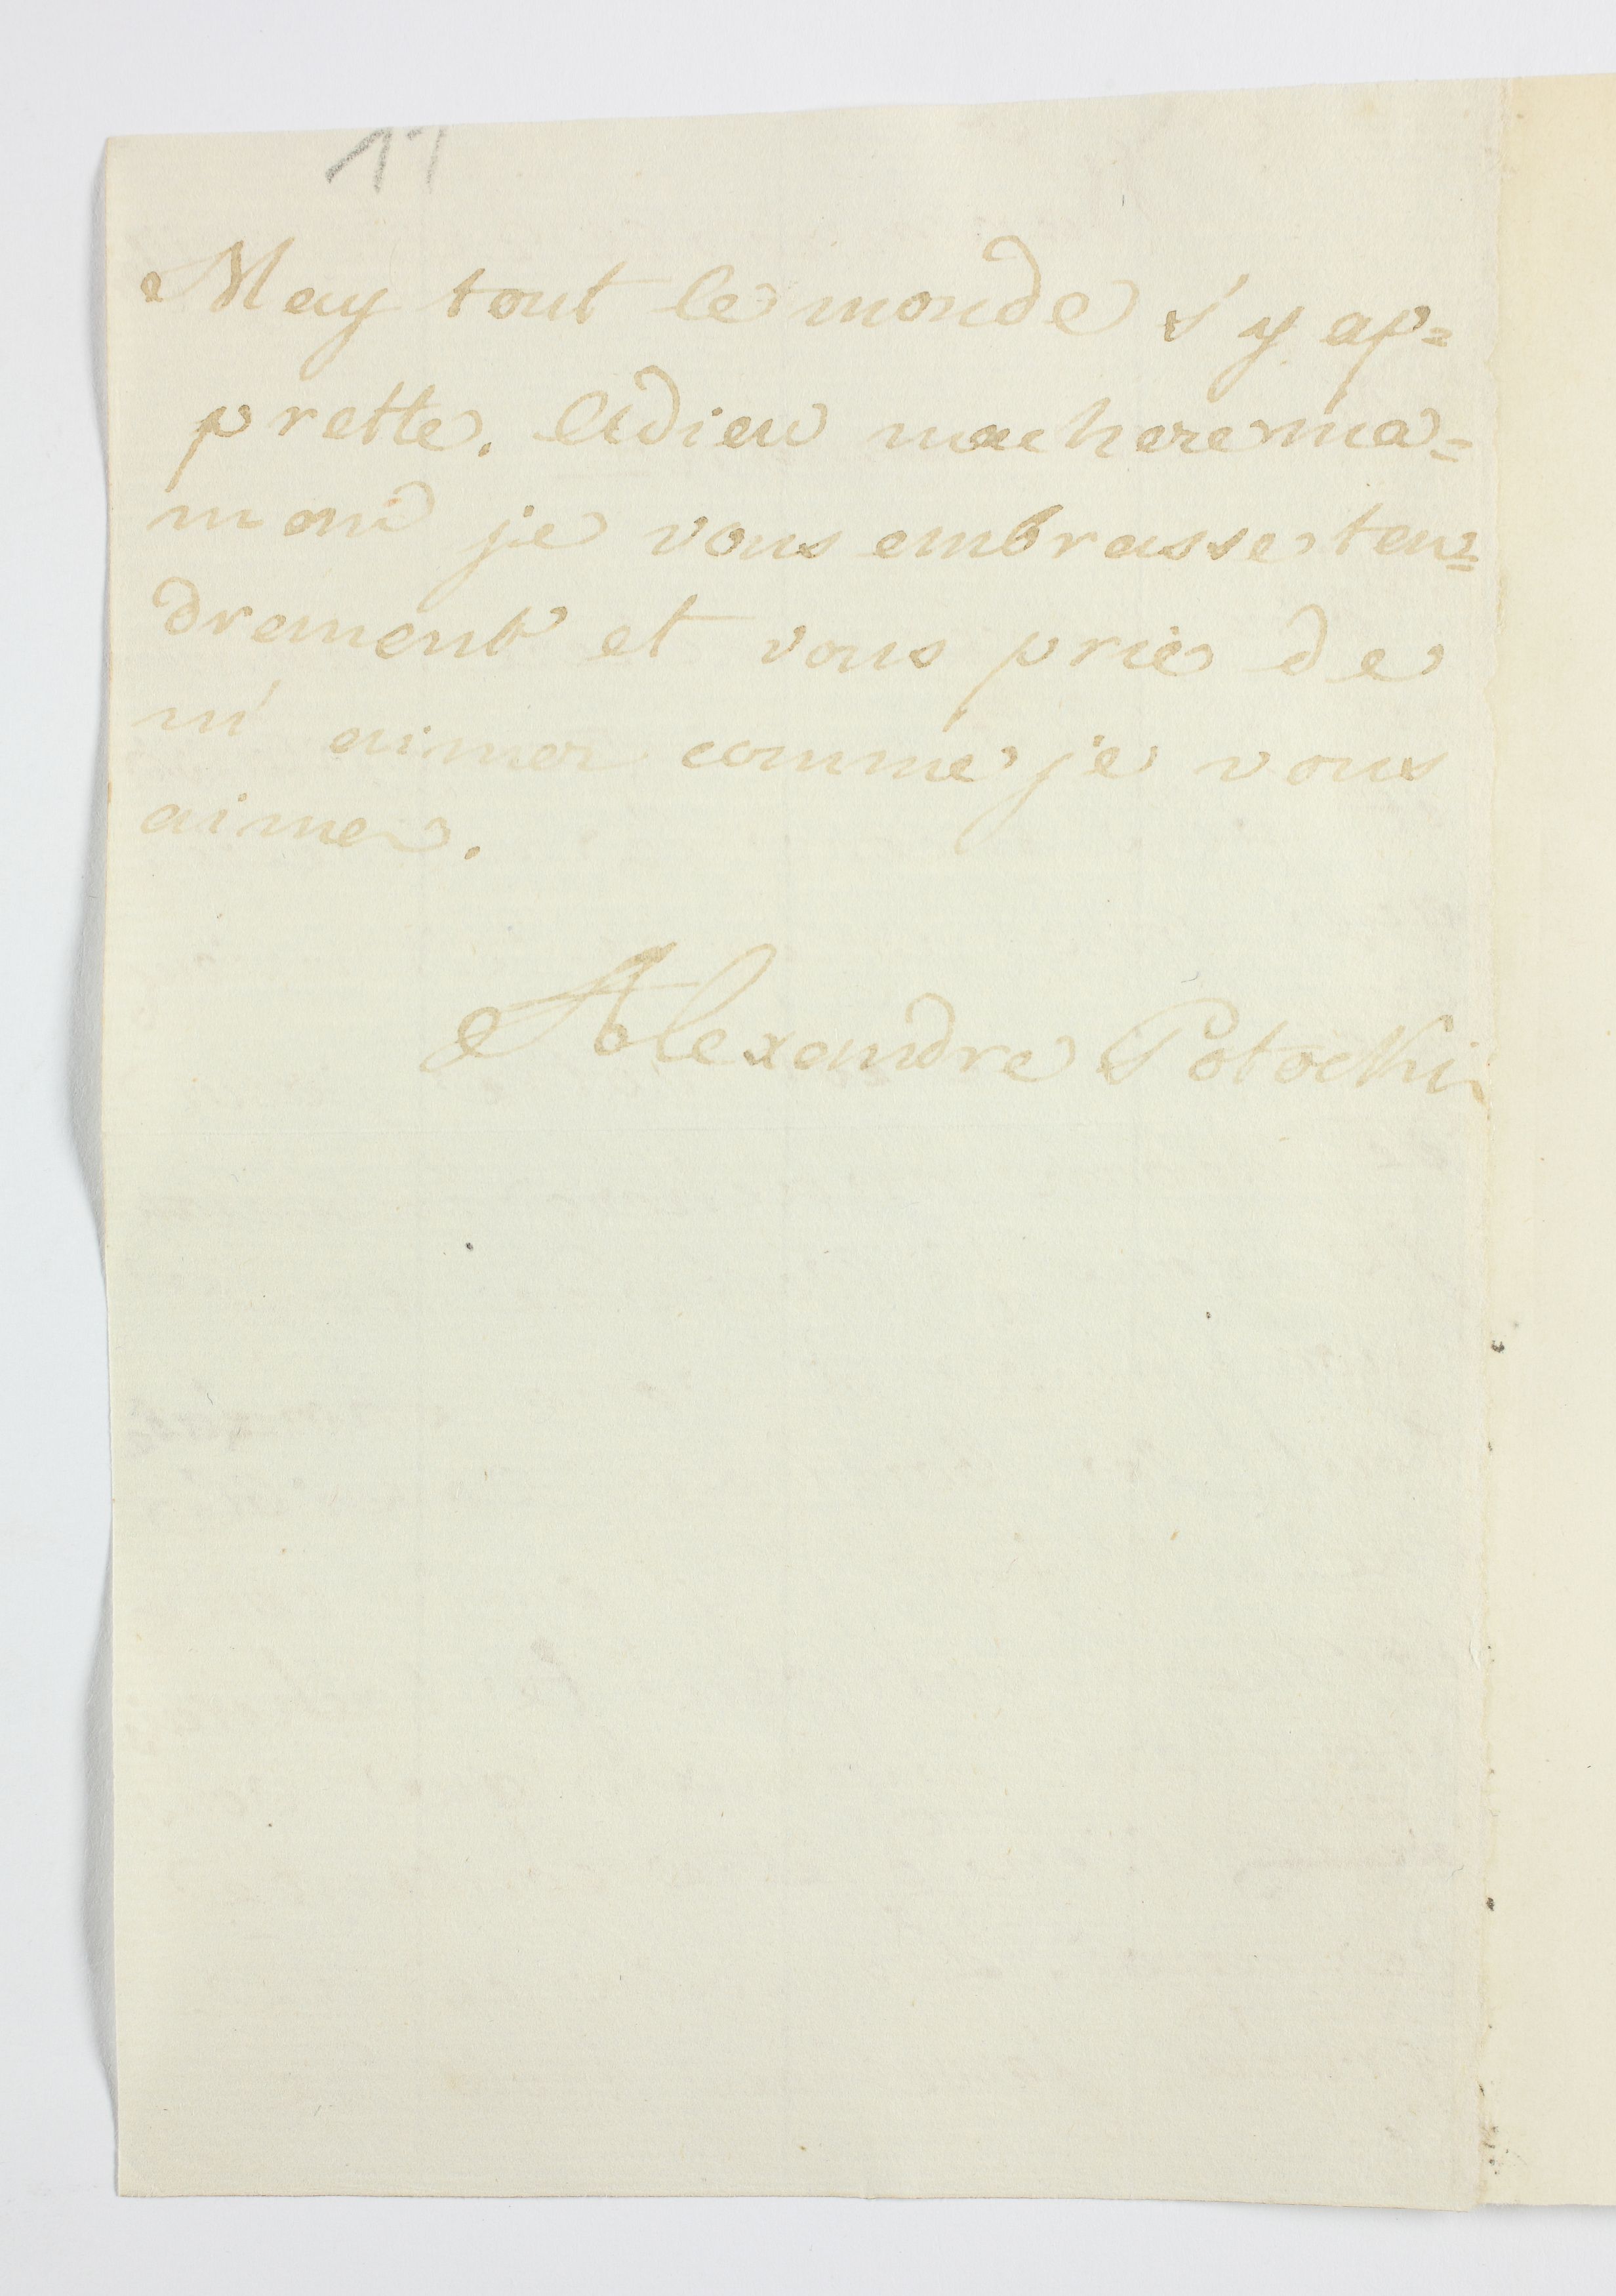 11
May tout le monde s'y ap=
prette. Adieu ma chere ma=
man je vous embrasse ten=
drement et vous prie de
m'aimer comme je vous
aime.
Alexandre Potocki